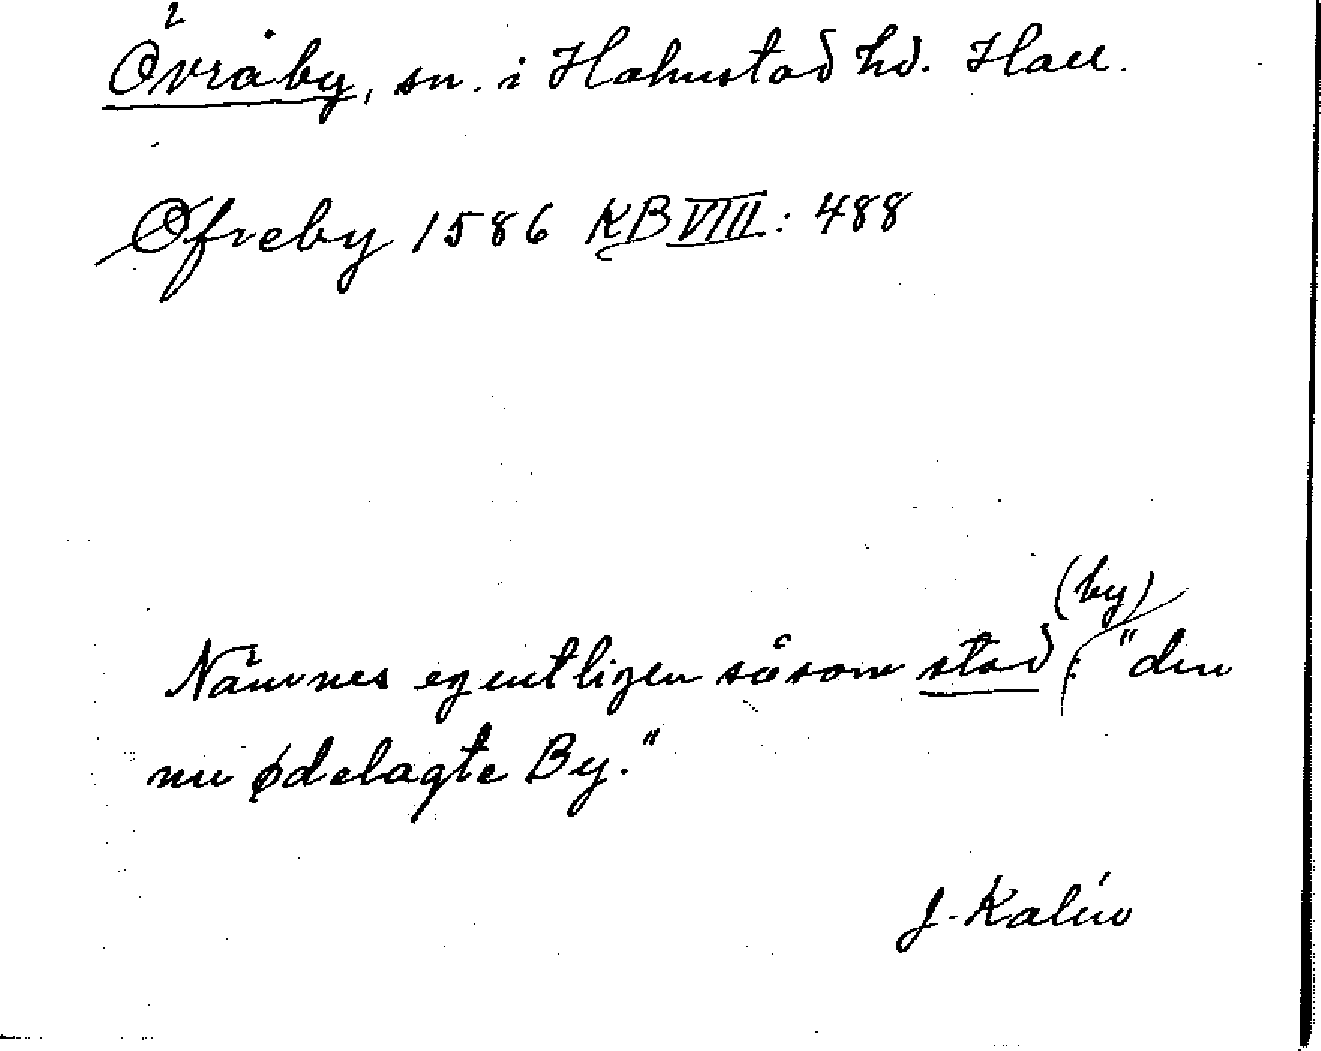 Övraby, sn. i Halmstad hd. Hall.
Øfreby 1586 KB VIII: 488
(by)
Nämnes egentligen såsom stad: "den
nu ødelagte By."
J. Kalén